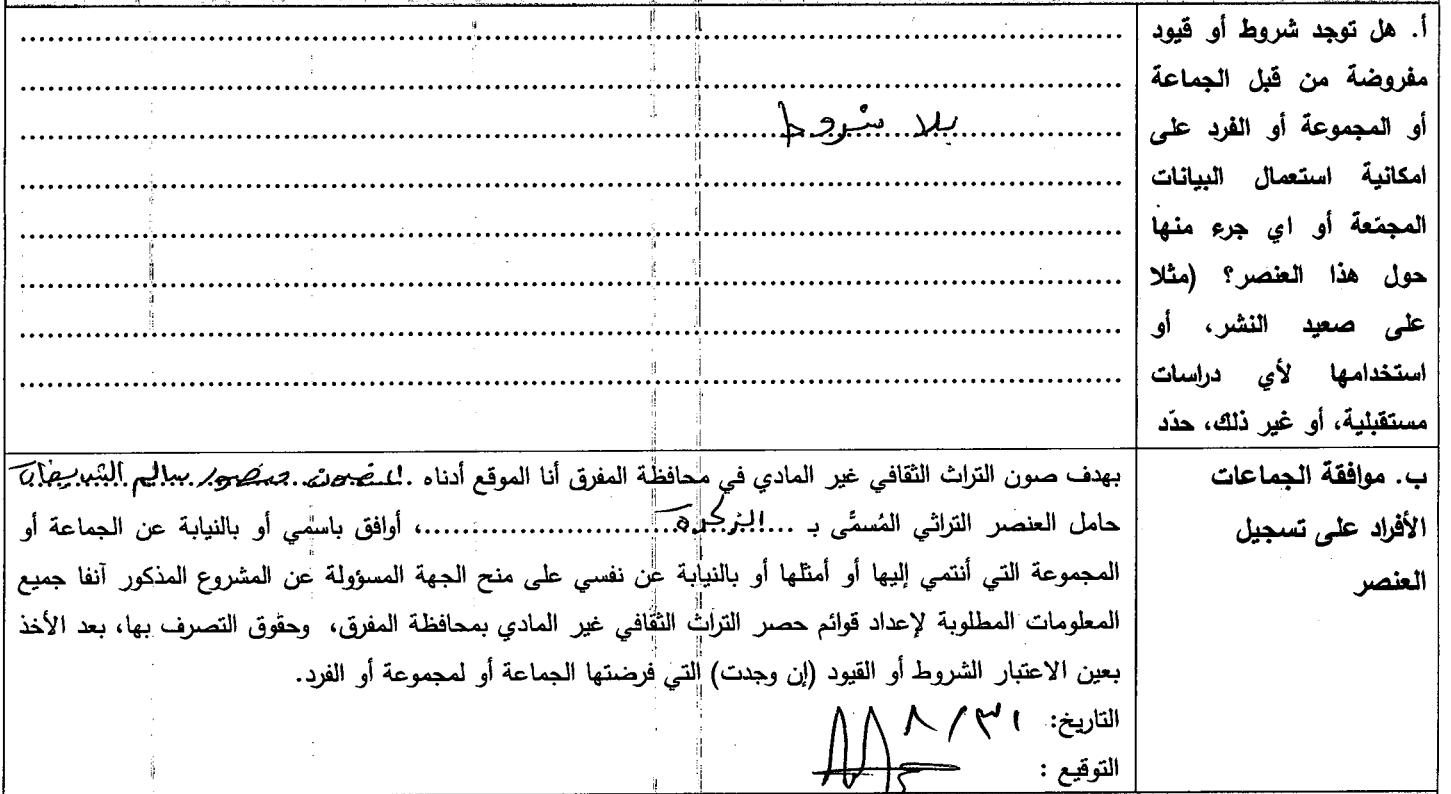 أ. هل توجد شروط أو قيود
مفروضة من قبل الجماعة
أو المجموعة أو الفرد على
امكانية استعمال البيانات
المجمّعة أو اي جرء منها
حول هذا العنصر؟ (مثلا
على صعيد النشر، أو
استخدامها لأي دراسات
مستقبلية، أو غير ذلك، حدّد
بلا شروط
ب. موافقة الجماعات
الأفراد على تسجيل
العنصر
بهدف صون التراث الثقافي غير المادي في محافظة المفرق أنا الموقع أدناه منصور سالم
حامل العنصر التراثي المُسمَّى بـ ........................، أوافق باسمي أو بالنيابة عن الجماعة أو
المجموعة التي أنتمي إليها أو أمثلها أو بالنيابة عن نفسي على منح الجهة المسؤولة عن المشروع المذكور آنفا جميع
المعلومات المطلوبة لإعداد قوائم حصر التراث الثقافي غير المادي بمحافظة المفرق، وحقوق التصرف بها، بعد الأخذ
بعين الاعتبار الشروط أو القيود (إن وجدت) التي فرضتها الجماعة أو لمجموعة أو الفرد.
التاريخ: ٨/٣١
التوقيع :